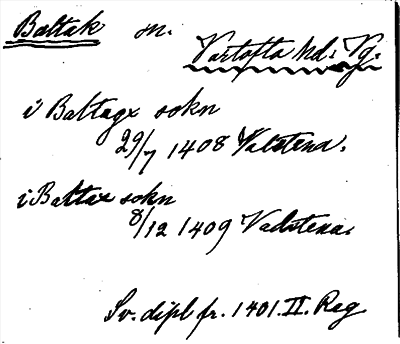 Baltak sn.
Vartofta hd. Vg.
i Baltagx sokn
29/7 1408 Vatstena.
i Baltax sokn
8/12 1409 Vadstena.
Sv. dipl fr. 1401. II. Reg